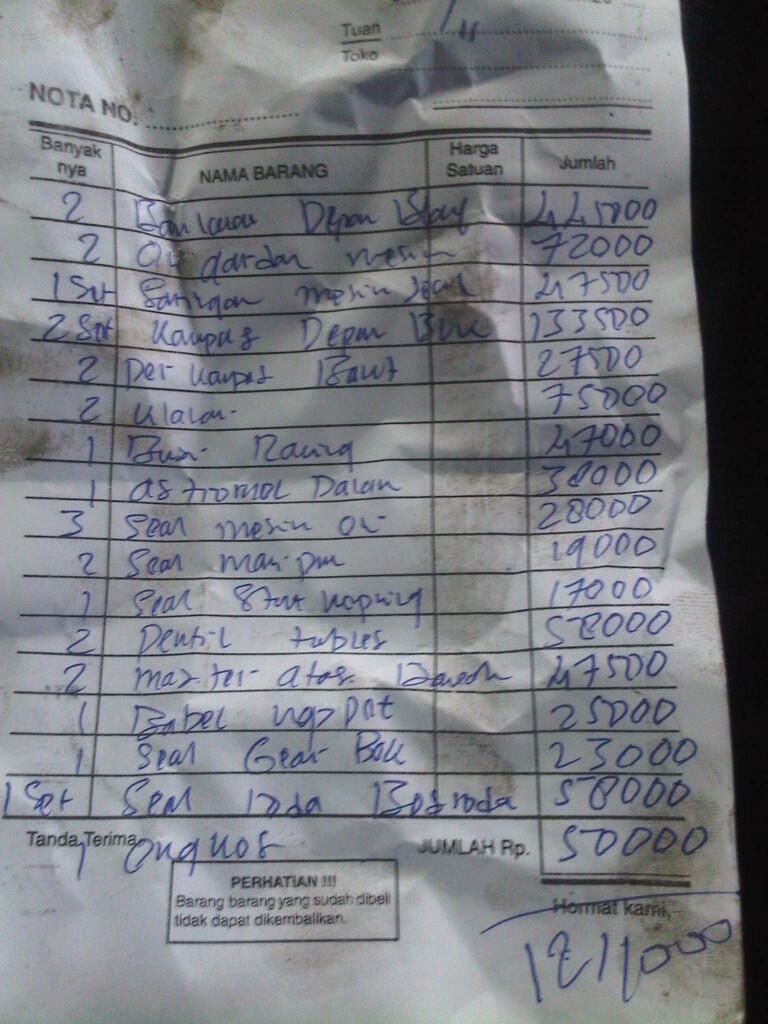 Tuan
Toko
NOTA NO.
Banyak nya NAMA BARANG Harga Satuan Jumlah
2 Depan 445000
2 Oli gardan mesin 72000
1 Set Saringan mesin 47500
2 Set Kampas Depan 133500
2 Per Kampas 27500
2 Klatar 75000
1 Racing 47000
1 astromol Dalan 38000
3 Seal mesin Oli 28000
2 Seal 19000
1 Seal Start 17000
2 Pentil tubles 58000
2 master atas 47500
1 Babel 25000
1 Seal Gear Bok 23000
1 Set Seal roda Bosroda 58000
Tanda Terima, Ongkos JUMLAH Rp. 50000
PERHATIAN !!!
Barang barang yang sudah dibeli
tidak dapat dikembalikan.
Hormat kami,
1211000